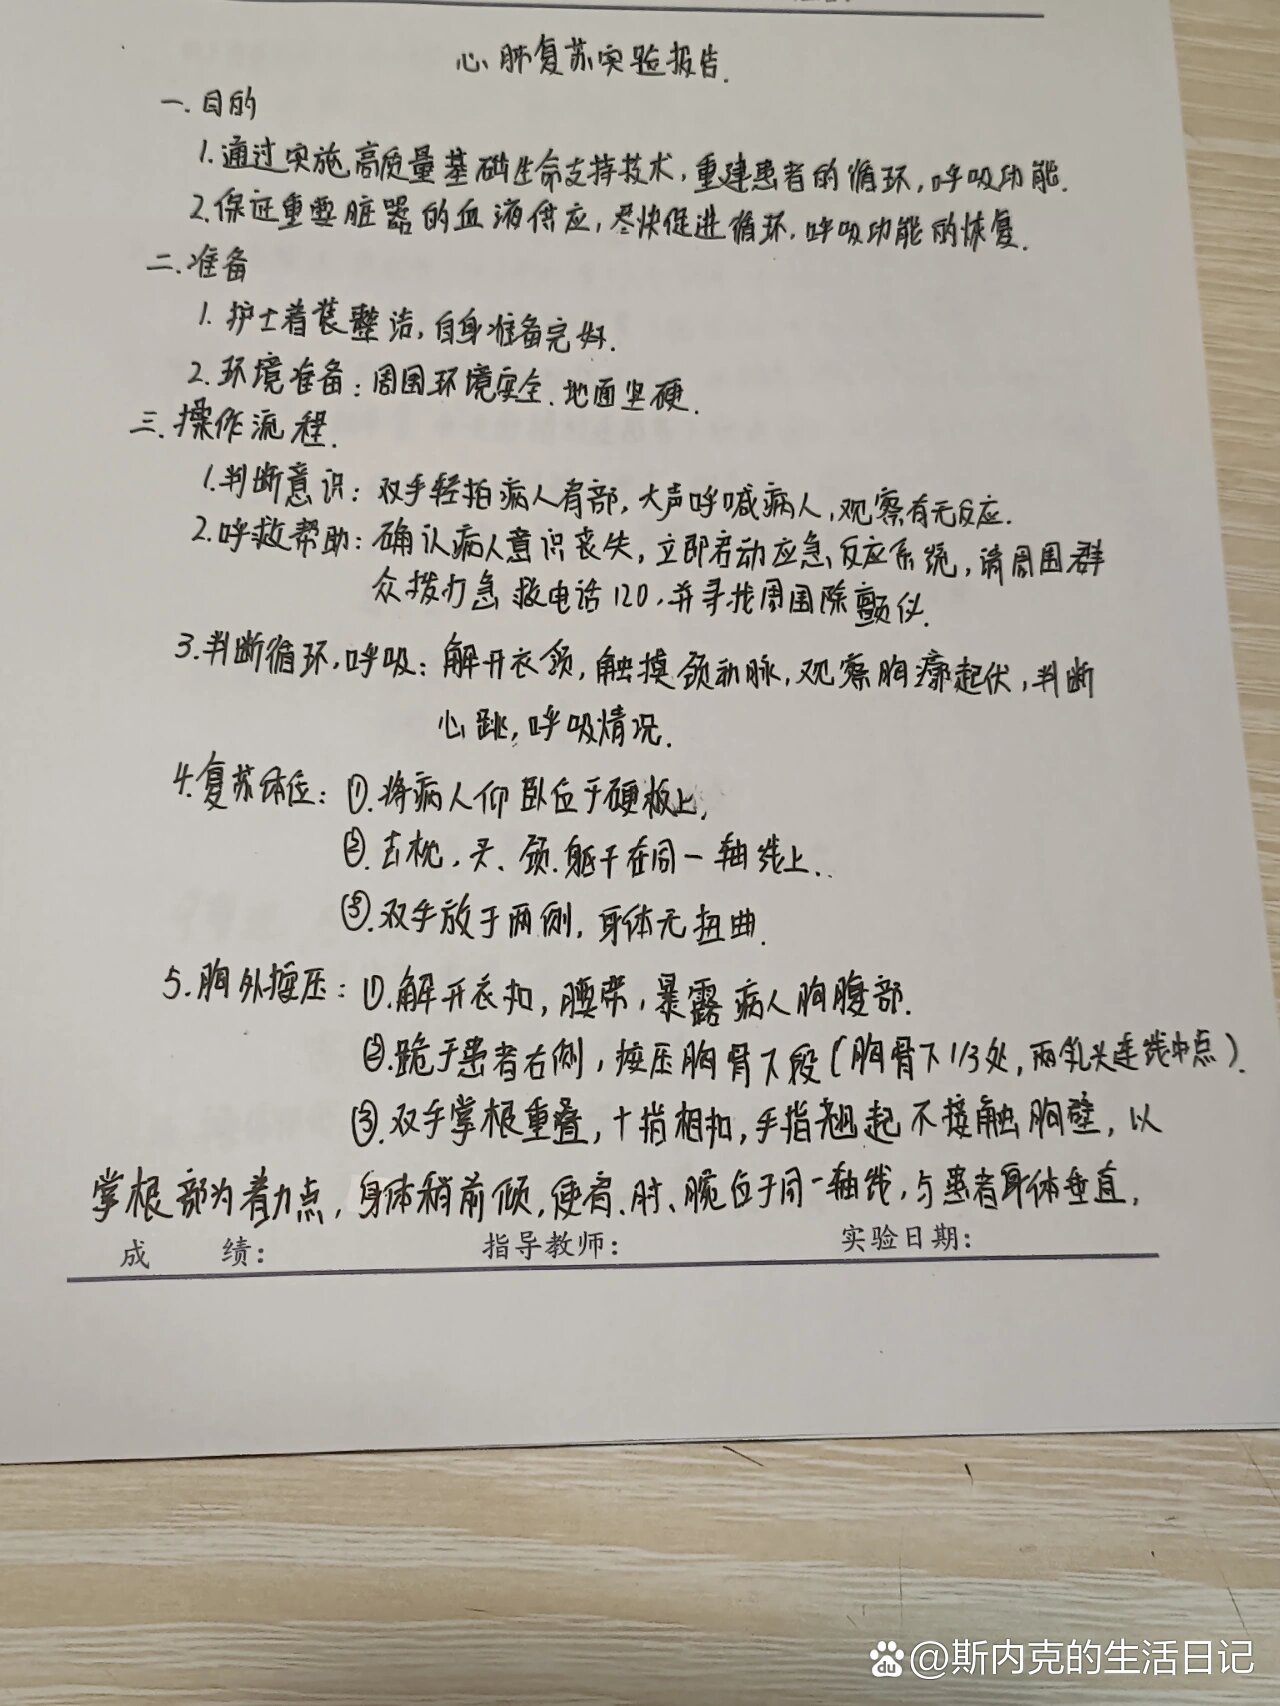 心肺复苏实验报告.
一.目的
1.通过实施高质量基础生命支持技术,重建患者的循环,呼吸功能.
2.保证重要脏器的血液供应,尽快促进循环,呼吸功能的恢复.
二.准备
1.护士着装整洁,自身准备完好.
2.环境准备:周围环境安全.地面坚硬.
三.操作流程.
1.判断意识:双手轻拍病人肩部,大声呼喊病人,观察有无反应.
2.呼救帮助:确认病人意识丧失,立即启动应急反应系统,请周围群
众拨打急救电话120,并寻找周围除颤仪.
3.判断循环,呼吸:解开衣领,触摸颈动脉,观察胸廓起伏,判断
心跳,呼吸情况.
4.复苏体位:①.将病人仰卧位于硬板上,
②.去枕,头、颈.躯干在同一轴线上..
③.双手放于两侧,身体无扭曲.
5.胸外按压:①.解开衣扣,腰带,暴露病人胸腹部.
②.跪于患者右侧,按压胸骨下段(胸骨下1/3处,两乳头连线中点).
③.双手掌根重叠,十指相扣,手指翘起不接触胸壁,以
掌根部为着力点,身体稍前倾,使肩、肘、腕位于同一轴线,与患者身体垂直,
成 绩: 指导教师: 实验日期:
du @斯内克的生活日记